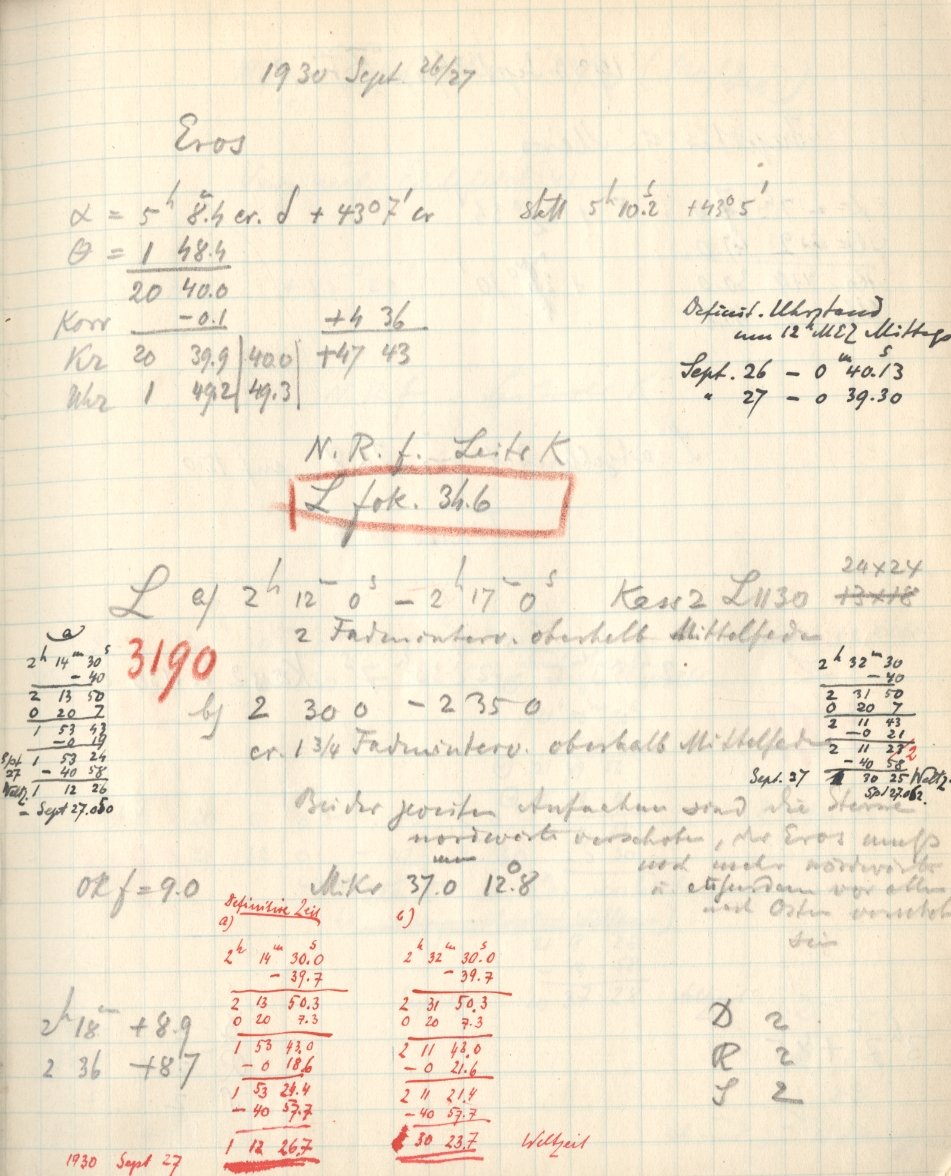 1930 Sept. 26/27
Eros
α = 5h 8m.4 cr. δ + 43° 7' cr statt 5h 10.2 +43° 5'
Θ = 1 48.4
20 40.0
Korr - 0.1 +4 36
Kr 20 39.9 | 40.0 | +47 43
Uhr 1 49.2 | 49.3 |
Definit. Uhrstand
um 12h MEZ Mittags
Sept. 26 - 0m 40.13s
" 27 - 0 39.30
N. R. f. Leitr K
L fok. 34.6
L a) 2h 12m 0s - 2h 17m 0s Kass 2 L1130 24x24
13x18
2 Fadeninterv. oberhalb Mittelfaden
3190
b) 2 30 0 - 2 35 0
cr. 1 3/4 Fadeninterv. oberhalb Mittelfaden
a
2h 14m 30s
- 40
2 13 50
0 20 7
1 53 43
- 0 19
Spt 1 53 24
27 - 40 58
Weltz. 1 12 26
- Sept 27.050
2h 32m 30
- 40
2 31 50
0 20 7
2 11 43
- 0 21
2 11 22
- 40 58
Sept. 27 1 30 25 Weltz.
Spt 27.062
Bei der zweiten Aufnahme sind die Sterne
nordwärts verschoben, der Eros muß
noch mehr nordwärts
u. außerdem vor allem
nach Osten verschob
sein
Ok f = 9.0 Mikr 37.0mm 12°.8
Definitive Zeit
a)
2h 14m 30.0s
- 39.7
2 13 50.3
0 20 7.3
1 53 43.0
- 0 18.6
1 53 24.4
- 40 57.7
1 12 26.7
b)
2h 32m 30.0s
- 39.7
2 31 50.3
0 20 7.3
2 11 43.0
- 0 21.6
2 11 21.4
- 40 57.7
1 30 23.7 Weltzeit
2h 18m +8.9
2 36 +8.7
D 2
R 2
S 2
1930 Sept 27